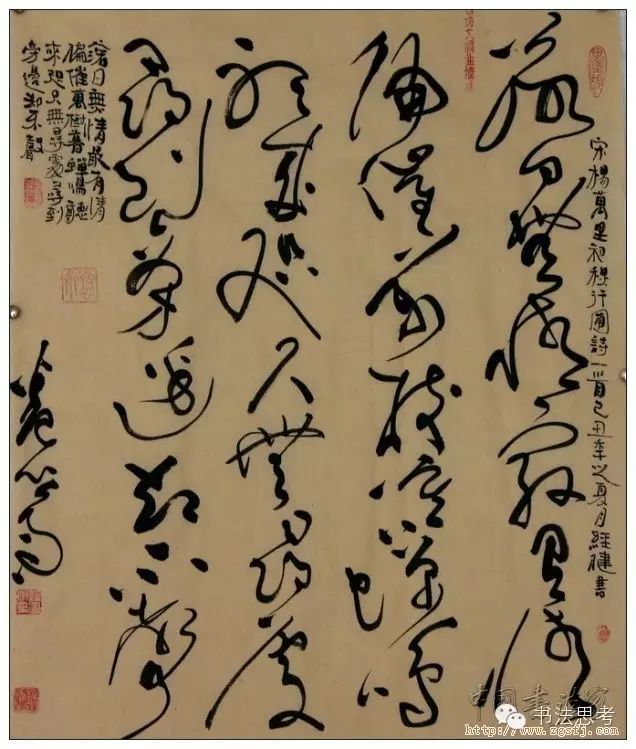 宋楊萬里初穐行圃詩一首己丑年之夏月經健書
落日無情最有情
偏催萬樹暮蟬鳴
聽來咫尺無尋處
尋到旁邊却不聲
落日無情最有情
偏催萬樹暮蟬鳴聽
來咫尺無尋處尋到
旁邊却不聲
中國書法家
书法思考
http://www.zgsfj.com